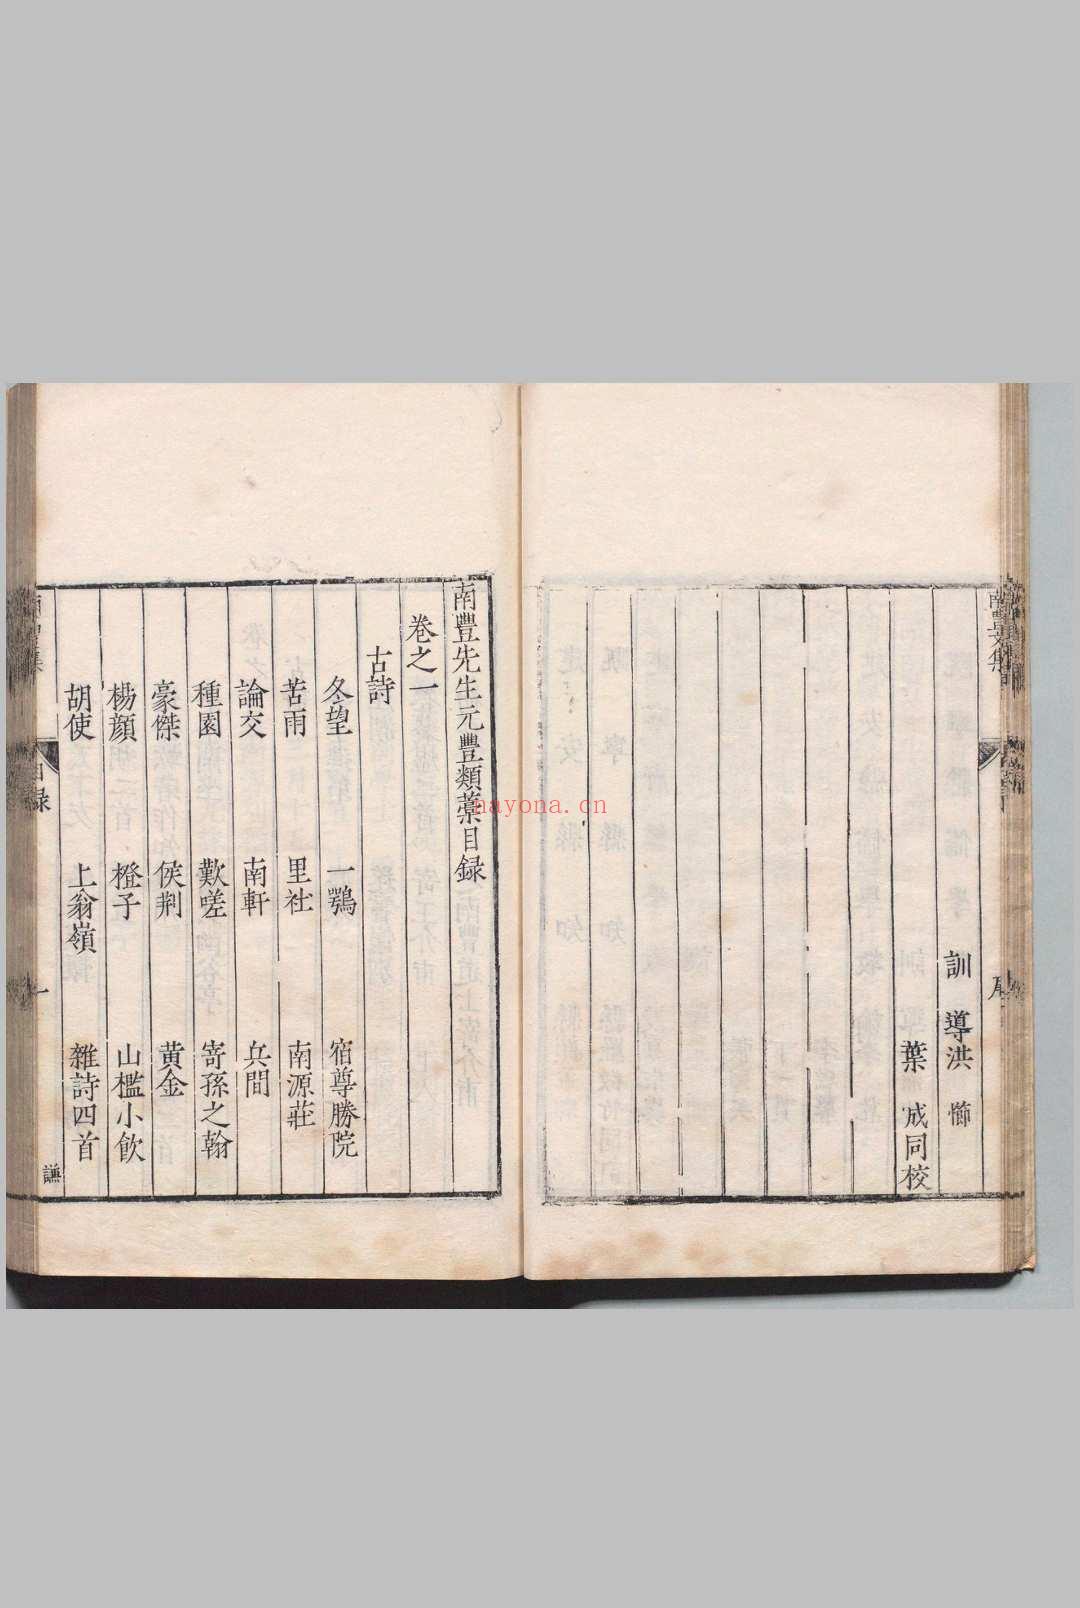 南豐文集
序
訓　導洪　㦂
葉　成同校
南豐先生元豐類藳目録
卷之一
古詩
冬望　一鶚　宿尊勝院
苦雨　里社　南源莊
論交　南軒　兵間
種園　歎嗟　寄孫之翰
豪傑　侯荆　黄金
楊顔　橙子　山檻小飲
胡使　上翁嶺　雜詩四首
目録
一
謙
nayona.cn